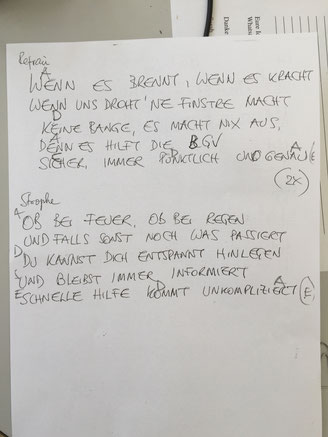 Refrain
A
WENN ES BRENNT, WENN ES KRACHT
WENN UNS DROHT 'NE FINSTRE MACHT
D
KEINE BANGE, ES MACHT NIX AUS,
A
DENN ES HILFT DIE BGV
E D A
SICHER, IMMER PÜNKTLICH UND GENAU (E
(2X)
Strophe
A OB BEI FEUER, OB BEI REGEN
UND FALLS SONST NOCH WAS PASSIERT
D DU KANNST DICH ENTSPANNT HINLEGEN
UND BLEIBST IMMER INFORMIERT
D A
E SCHNELLE HILFE KOMMT UNKOMPLIZIERT (E)
Danke
Whats
Eure